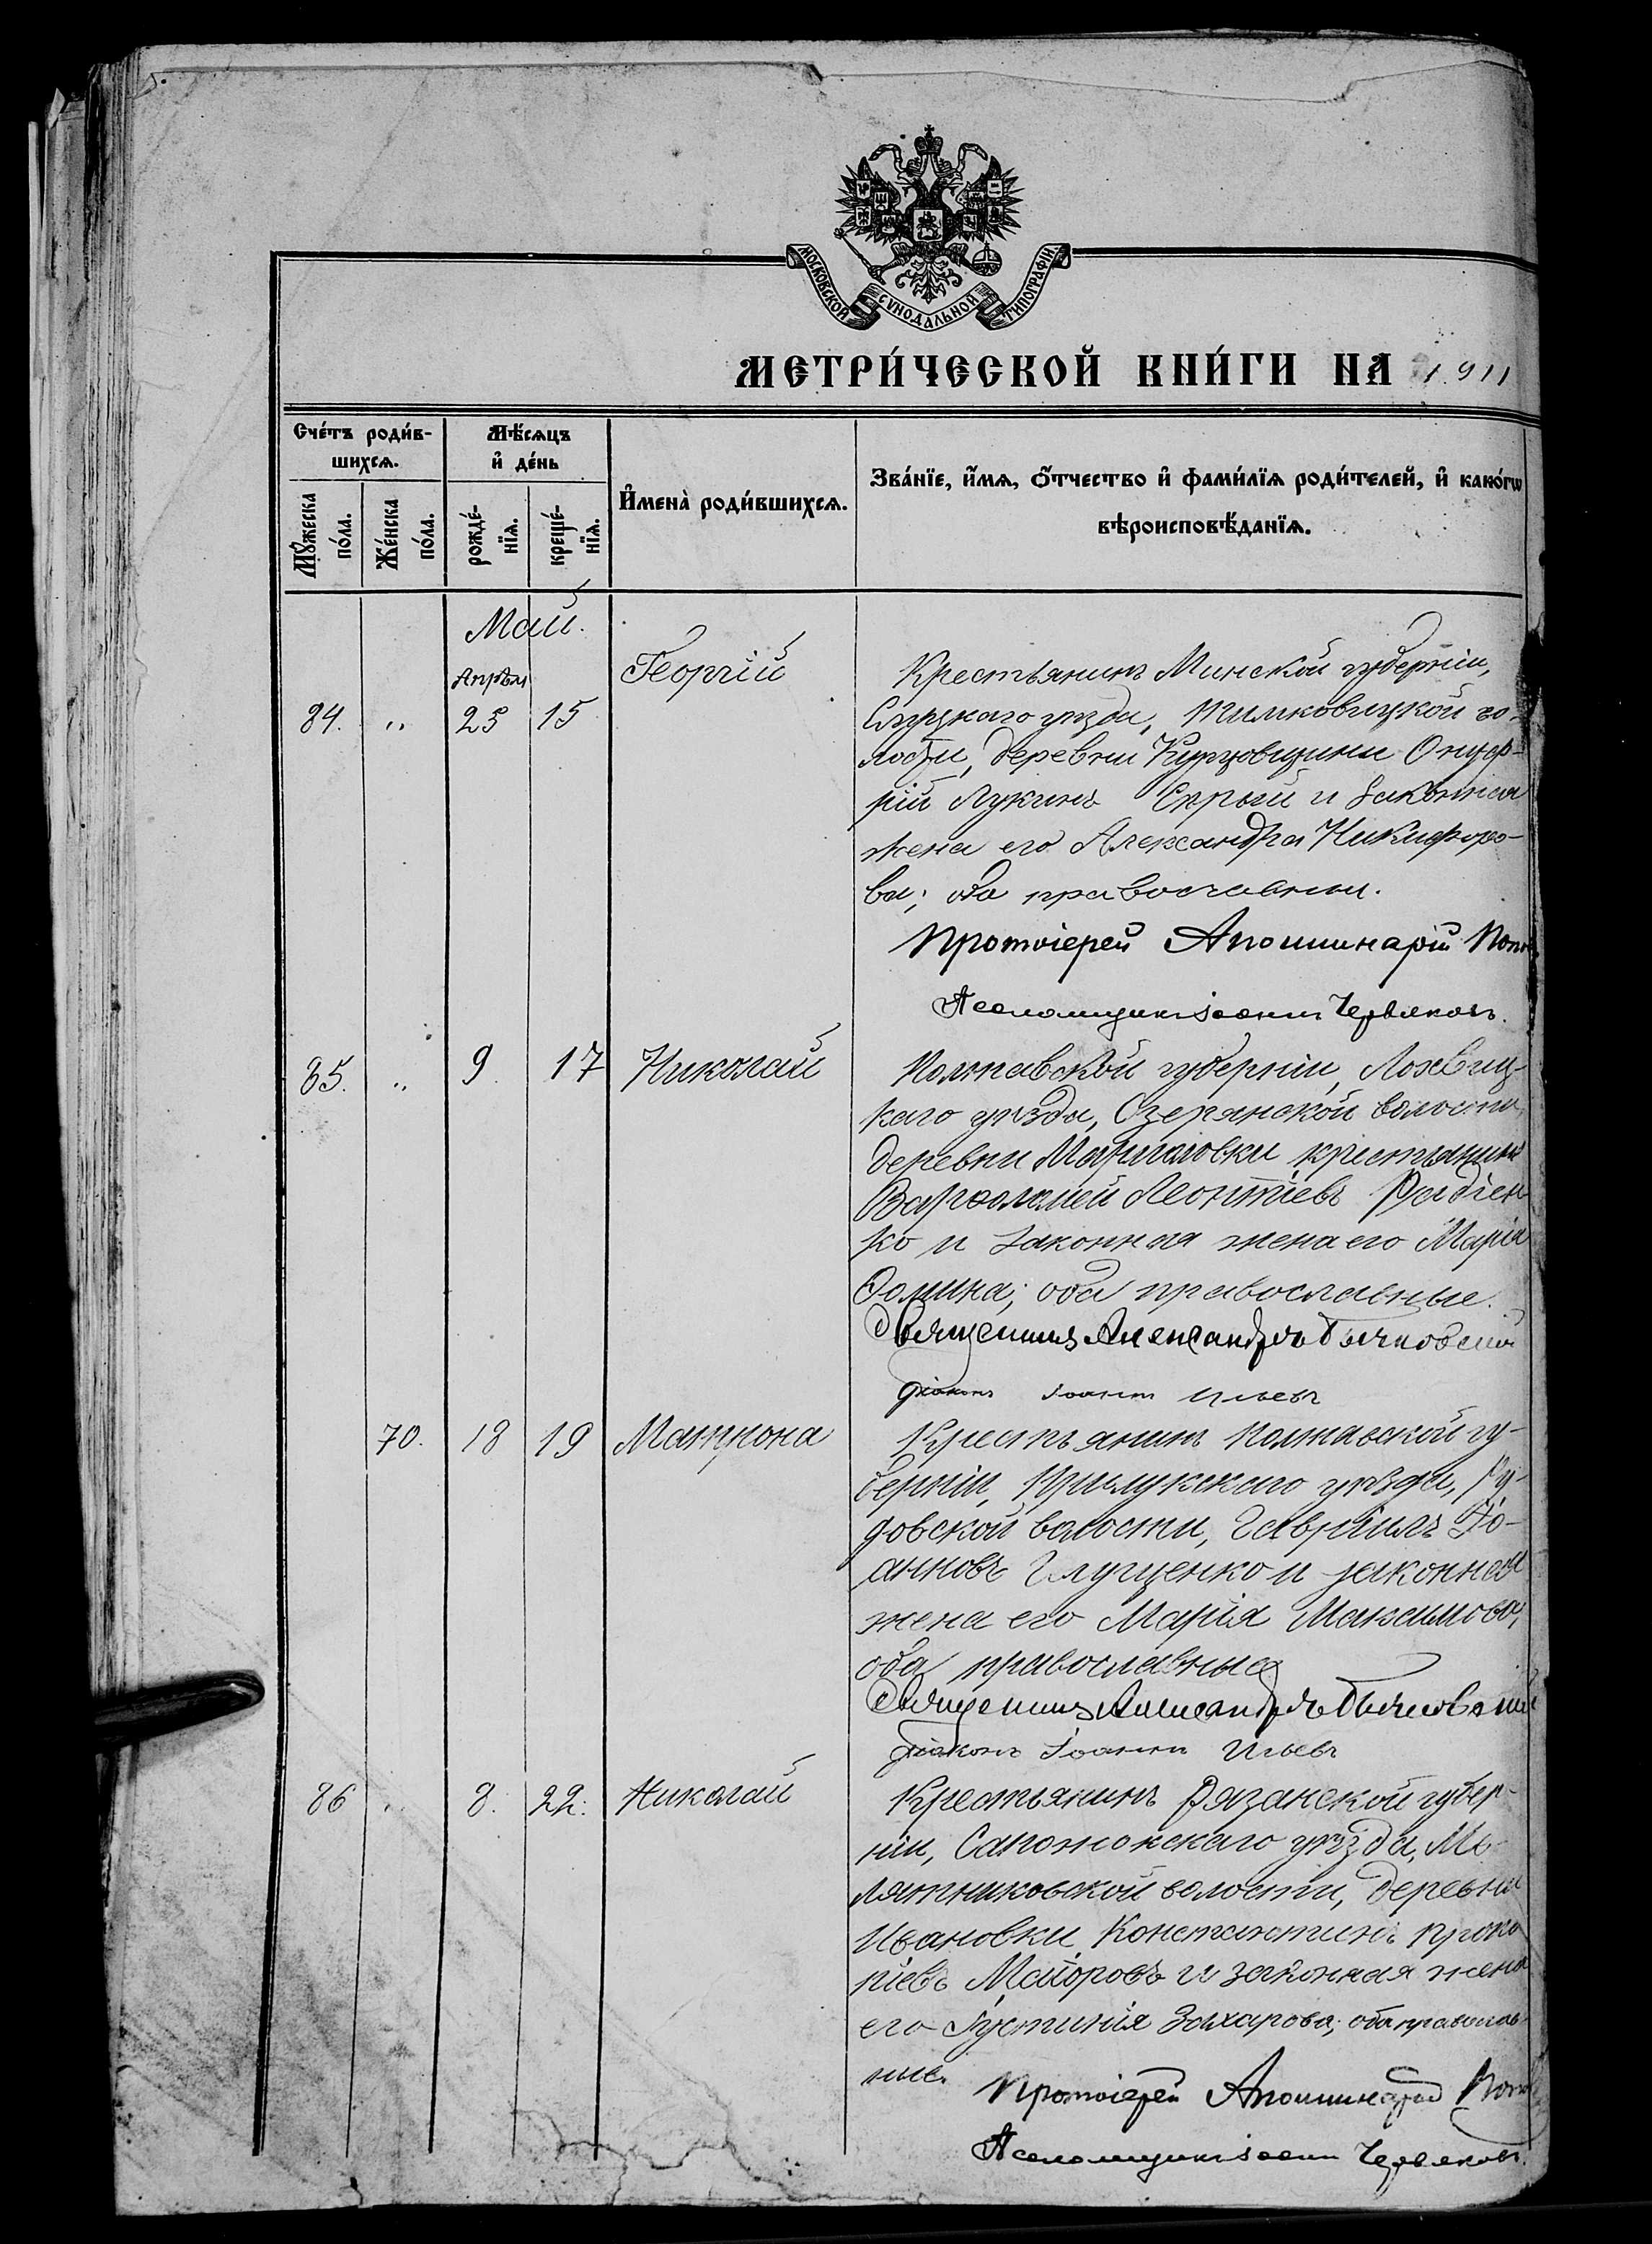 МОСКОВСКОЙ СѴНОДАЛЬНОЙ ТИПОГРАФІИ.
МЕТРИ́ЧЕСКОЙ КНИ́ГИ НА 1911
Сче́тъ роди́в-
шихсѧ.
Мѣ́сѧцъ
и҆ де́нь
И҆мена̀ роди́вшихсѧ.
Зва́нїе, и҆́мѧ, ѻ҆́тчество и҆ фами́лїѧ роди́телей, и҆ како́гѡ
вѣроисповѣ́данїѧ.
Мꙋ́жеска
по́ла.
Же́нска
по́ла.
рожде́-
нїѧ.
креще́-
нїѧ.
Май.
Апрѣля
84. „ 25 15 Георгій
Крестьянинъ Минской губерніи,
Слуцкаго уѣзда, Тимковицкой во-
лости, деревни Куцовщины Онуф-
рій Лукинъ Сѣрый и законная
жена его Александра Никифоро-
ва; оба православные.
Протоіерей Аполлинарій
Псаломщикъ Іоаннъ Червяковъ.
85. „ 9. 17 Николай
Полтавской губерніи, Лохвиц-
каго уѣзда, Озерянской волости,
деревни крестьянинъ
Варѳоломей Леонтіевъ Радіен-
ко и законная жена его Марія
Ѳомина; оба православные.
Священникъ Александръ
Діаконъ Іоаннъ Ильевъ
70. 18 19 Матрона
Крестьянинъ Полтавской гу-
берніи, Прилукскаго уѣзда, Ру-
довской волости, Гавріилъ Іо-
анновъ Глущенко и законная
жена его Марія Максимова,
оба православные
Священникъ Александръ
Діаконъ Іоаннъ Ильевъ
86 „ 8. 22. Николай
Крестьянинъ Рязанской губер-
ніи, Сапожокскаго уѣзда, Мо-
волости, деревни
Ивановки Константинъ Проко
піевъ Маіоровъ и законная жена
его Іустинія Захарова; оба православ-
ные.
Протоіерей Аполлинарій
Псаломщикъ Іоаннъ Червяковъ.